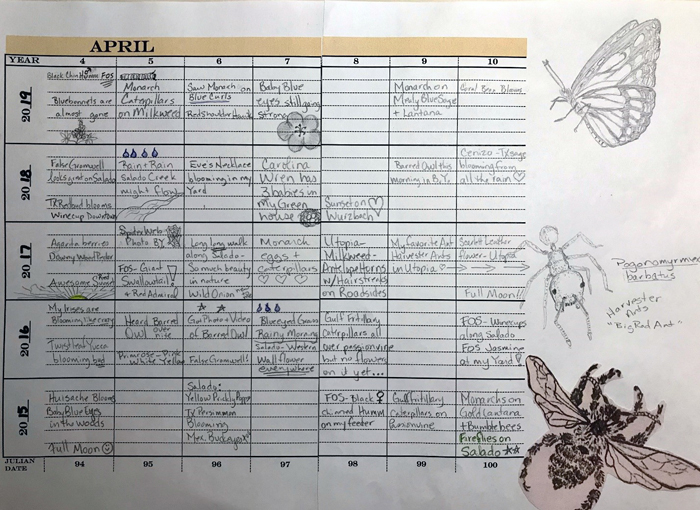 APRIL
YEAR 4 5 6 7 8 9 10
2019
Black Chin Humm FOS
Bluebonnets are
almost gone
Monarch
Caterpillars
on Milkweed
Saw Monarch on
Blue Curls
Redshoulder Hawk
Baby Blue
eyes still going
strong
Monarch on
Mealy Blue Sage
+ Lantana
Coral Bean Blooms
2018
False Gromwell
looks great on Salado
TX Redbud blooms
Winecup Downtown
Rain + Rain
Salado Creek
might flow
Eve's Necklace
blooming in my
Yard
Carolina
Wren has
3 babies in
My Green
house
Sunset on
Wurzbach
Barred Owl this
morning in B.Y.
Cenizo-TX sage
blooming from
all the rain
2017
Agarita berries
Downy Woodpecker
Awesome Sunset
Spider Web
Photo BY
FOS-Giant
Swallowtail!
+ Red Admiral
Long long walk
along Salado-
So much beauty
in nature
Wild Onion
Monarch
eggs +
caterpillars
Utopia-
Milkweed-
Antelope Horns
w/Hairstreaks
on Roadsides
My favorite Ant
Harvester Ants
in Utopia
Scarlet Leather
flower-Utopia
Full Moon!!
2016
My Irises are
Blooming like crazy
Twistleaf Yucca
blooming
Heard Barred
Owl over
nite
Primrose-Pink
White Yellow
Got Photo + Video
of Barred Owl
False Gromwell!
Blue eyed Grass
Rainy Morning
Salado-Western
Wallflower
everywhere
Gulf Fritillary
Caterpillars all
over passionvine
but no flowers
on it yet...
FOS-Winecups
along Salado
FOS Jasmine
at my Yard
2015
Huisache Blooms
Baby Blue Eyes
in the Woods
Full Moon
Salado:
Yellow Prickly Poppy
TX Persimmon
Blooming
Mex. Buckeye
FOS-Black ♀
chinned Humm
on my feeder
Gulf Fritillary
Caterpillars on
Passionvine
Monarchs on
Gold Lantana
+ Bumblebees
Fireflies on
Salado
JULIAN
DATE 94 95 96 97 98 99 100
Pogonomyrmex
barbatus
Harvester
Ants
"Big Red Ant"